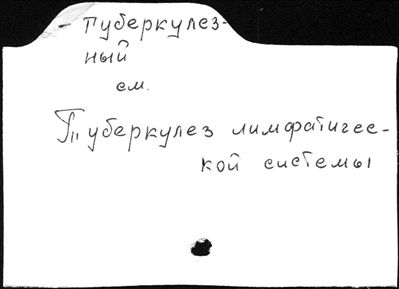 - Туберкулез-
ный
см.
Туберкулез лимфатичес-
кой системы